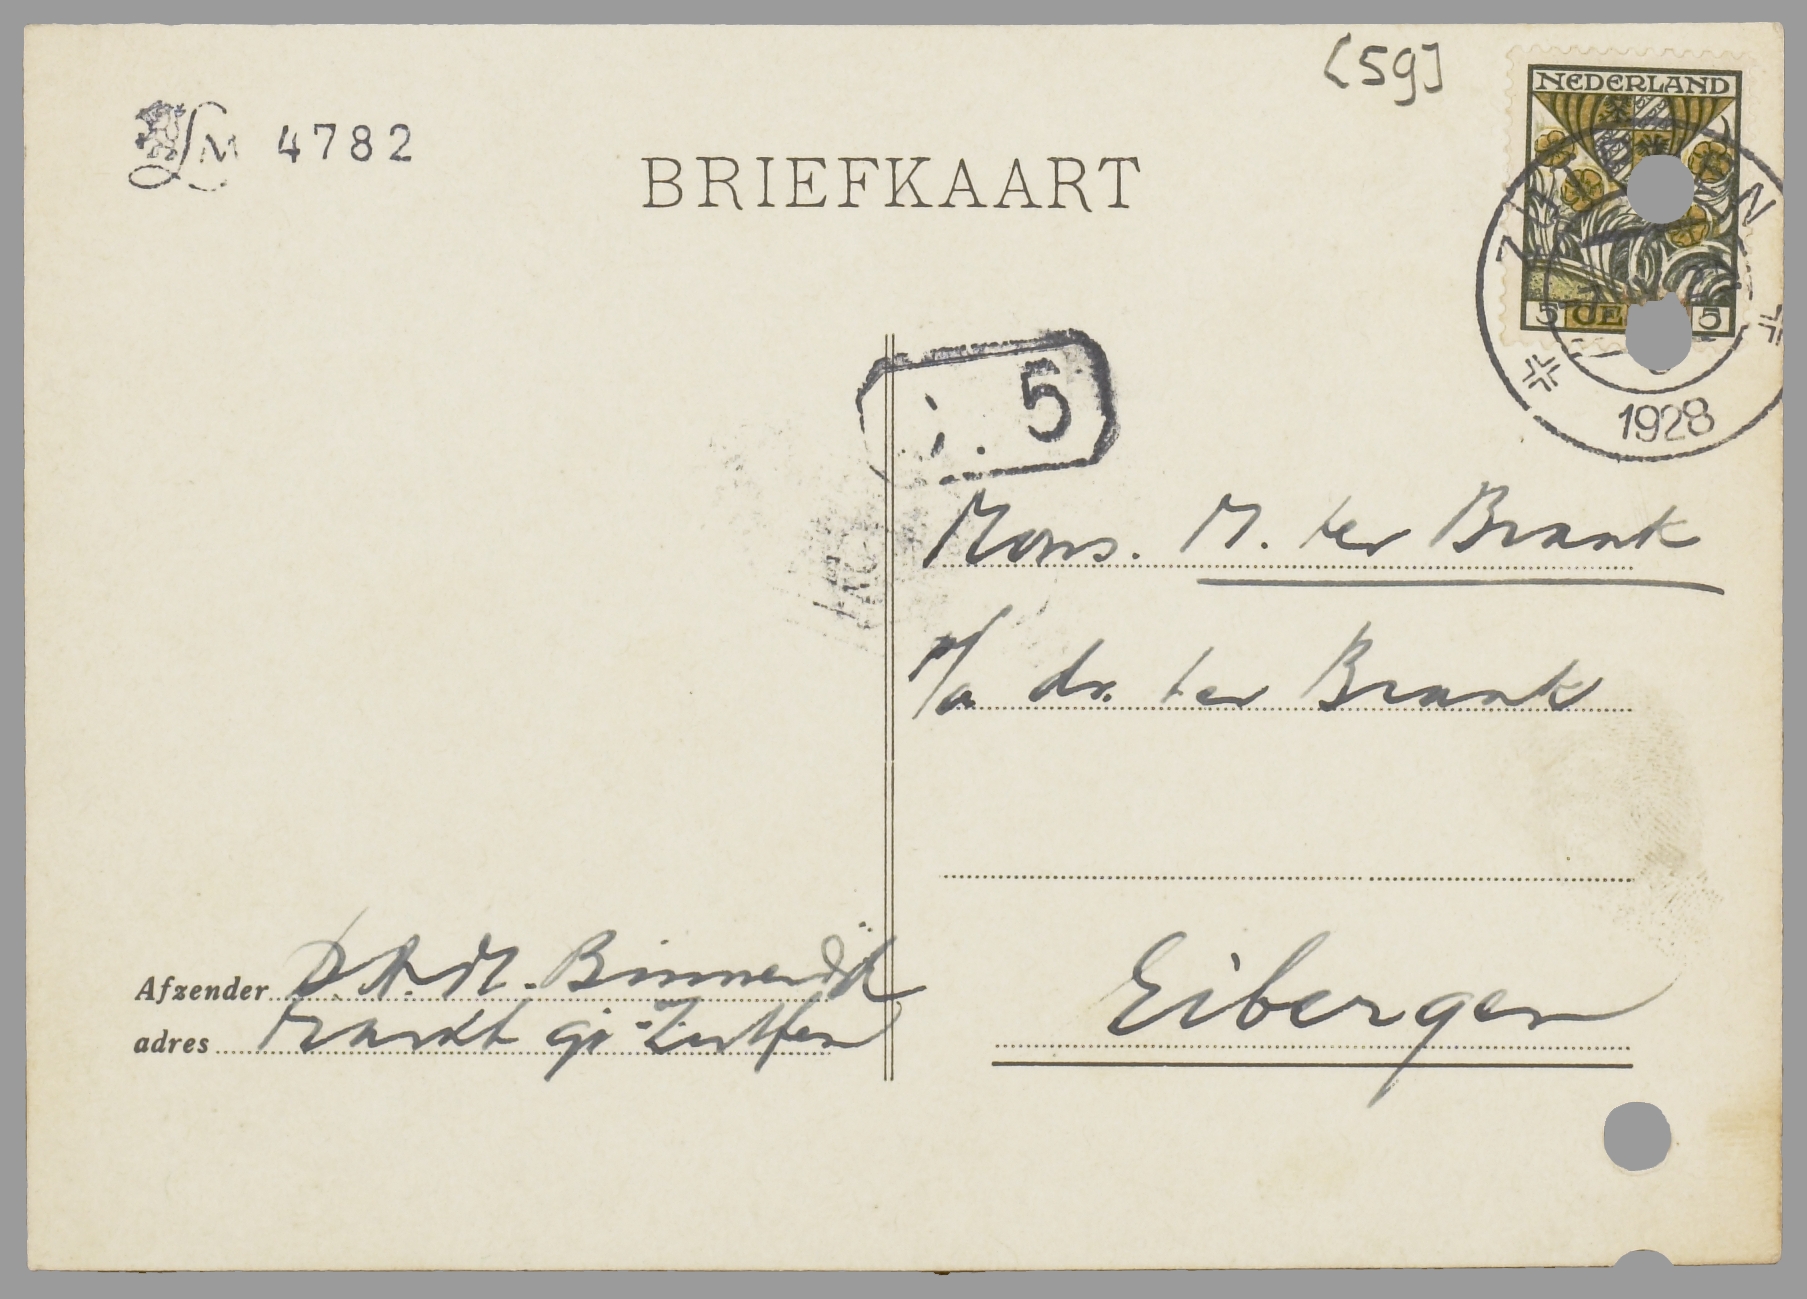 [59]
LM 4782
BRIEFKAART
NEDERLAND
5 CE 5
ZUTPHEN
1928
5
Mons. M. ter Braak
p/a dr. ter Braak
Eibergen
Afzender D.A.M. Binnendijk
adres markt 91 - Zutfen